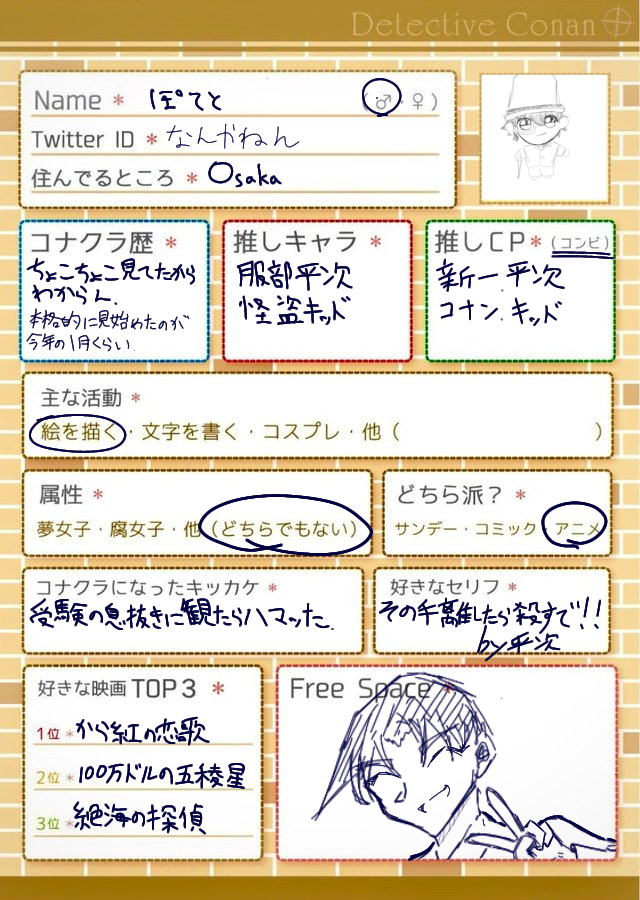 Detective Conan
Name * ぽてと (♂・♀)
Twitter ID * なんかねん
住んでるところ * Osaka
コナクラ歴 *
ちょこちょこ見てたから
わからん.
本格的に見始めたのが
今年の1月くらい.
推しキャラ *
服部平次
怪盗キッド
推しCP * (コンビ)
新一.平次
コナン.キッド
主な活動 *
絵を描く・文字を書く・コスプレ・他( )
属性 *
夢女子・腐女子・他(どちらでもない)
どちら派? *
サンデー・コミック・アニメ
コナクラになったキッカケ *
受験の息抜きに観たらハマッた.
好きなセリフ *
その手離したら殺すで!!
by平次
好きな映画TOP3 *
1位 * から紅の恋歌
2位 * 100万ドルの五稜星
3位 * 絶海の探偵
Free Space *